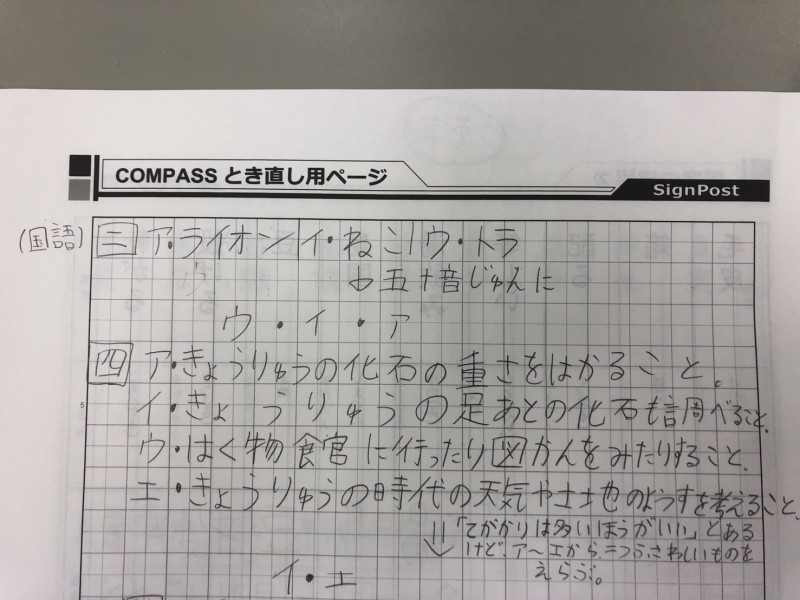 COMPASS とき直し用ページ
SignPost
(国語)
三 ア・ライオン イ・ねこ ウ・トラ
↓五十音じゅんに
ウ・イ・ア
四 ア・きょうりゅうの化石の重さをはかること。
イ・きょうりゅうの足あとの化石も調べること、
ウ・はく物食官に行ったり図かんをみたりすること、
エ・きょうりゅうの時代の天気や土地のようすを考えること、
↓「てがかりは多いほうがいい」とある
けど、ア〜エから、二つふさわしいものを
えらぶ。
イ・エ
5